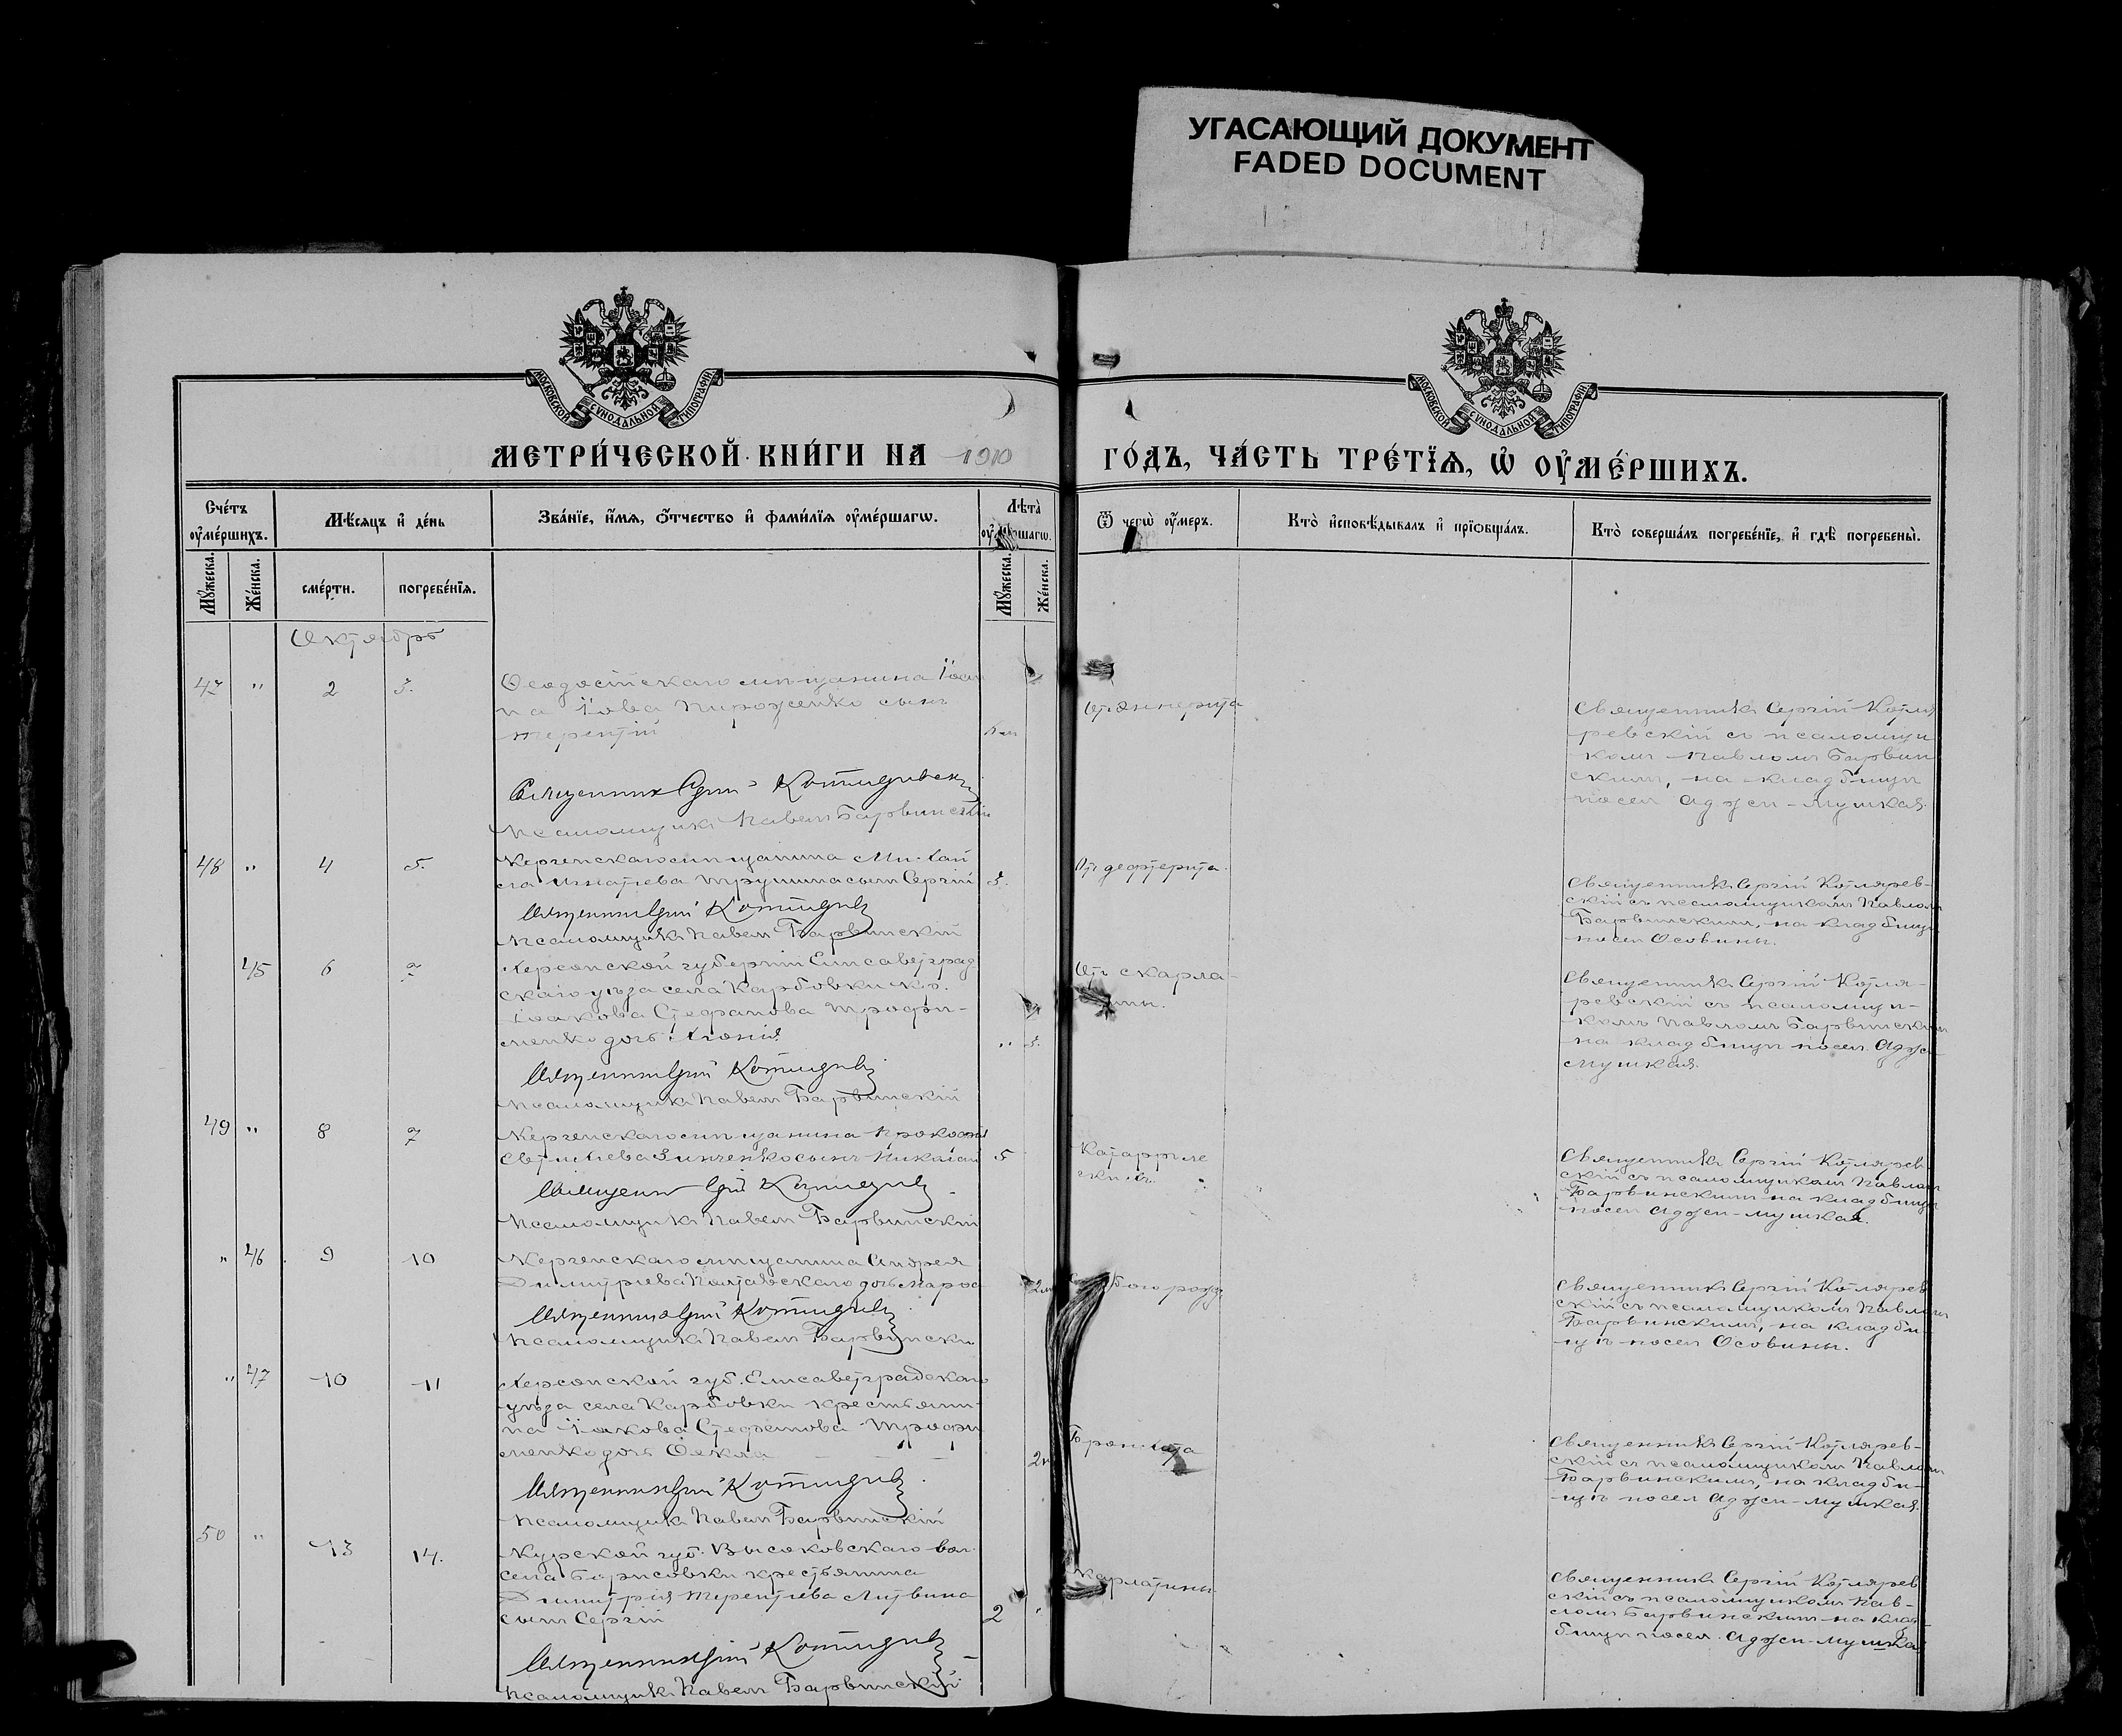 УГАСАЮЩИЙ ДОКУМЕНТ
FADED DOCUMENT
МОСКОВСКОЙ СѴНОДАЛЬНОЙ ТИПОГРАФІИ
МОСКОВСКОЙ СѴНОДАЛЬНОЙ ТИПОГРАФІИ
МЕТРИ́ЧЕСКОЙ КНИ́ГИ НА 1910
ГО́ДЪ, ЧА́СТЬ ТРЕ́ТЇѦ, Ѡ҆ ОУ҆МЕ́РШИХЪ.
Сче́тъ оу҆ме́ршихъ.
Мѣ́сѧцъ и҆ де́нь
Зва́нїе, и҆́мѧ, ѻ҆́тчество и҆ фами́лїѧ оу҆ме́ршагѡ.
Лѣ́та̀
Ѿ чегѡ̀ оу҆́меръ.
Кто̀ и҆сповѣ́дывалъ и҆ прїѻбща́лъ.
Кто̀ соверша́лъ погребе́нїе, и҆ гдѣ̀ погребены̀.
Мꙋ́жеска.
Же́нска.
сме́рти.
погребе́нїѧ.
Мꙋ́жеска.
Же́нска.
Октябрь
47 " 2 3.
Ѳеодосійскаго мѣщанина Іоан
на Іова Пироженко сынъ
Терентій
Священникъ Сергій Котляревскій
Псаломщикъ Павелъ Барвинскій
Священникъ Сергій Котля
ревскій съ псаломщи
комъ Павломъ Барвин
скимъ, на кладбищѣ
посел Аджи-Мушкая.
48 " 4 5.
Керченскаго мѣщанина Михаи
ла Игнатьева Трушина сынъ Сергій 3.
Отъ дефтерита.
Священникъ Сергій Котляревскій
Псаломщикъ Павелъ Барвинскій
Священникъ Сергій Котлярев-
скій съ псаломщикомъ Павломъ
Барвинскимъ, на кладбищѣ
посел Осовины.
45 6 7
Херсонской губерніи Елисаветград
скаго уѣзда села Карбовки кр.
Іакова Стефанова Трофи-
менко дочь Ксенія " 3.
Отъ скарла-
тины.
Священникъ Сергій Котляревскій
Псаломщикъ Павелъ Барвинскій
Священникъ Сергій Котля-
ревскій съ псаломщи-
комъ Павломъ Барвинскимъ
на кладбищѣ посел. Аджи-
Мушкая.
49 " 8 7
Керченскаго мѣщанина Прокофія
Зинченко сынъ Николай 5
Священникъ Сергій Котляревскій
Псаломщикъ Павелъ Барвинскій
Священникъ Сергій Котлярев-
скій съ псаломщикомъ Павломъ
Барвинскимъ на кладбищѣ
посел Аджи-Мушкая.
" 46 9 10
Керченскаго мѣщанина Андрея
Димитріева Полтавскаго дочь
Священникъ Сергій Котляревскій
Псаломщикъ Павелъ Барвинскій
Священникъ Сергій Котлярев
скій съ псаломщикомъ Павломъ
Барвинскимъ, на кладби-
щѣ посел Осовины.
" 47 10 11
Херсонской губ. Елисаветградскаго
уѣзда села Карбовки крестьяни-
на Іакова Стефанова Трофи
менко дочь Ѳекла
Бронхита
Священникъ Сергій Котляревскій
Псаломщикъ Павелъ Барвинскій
Священникъ Сергій Котлярев-
скій съ псаломщикомъ Павломъ
Барвинскимъ, на кладби-
щѣ посел Аджи-Мушкая.
50 " 13 14.
Курской губ. Высоковскаго вол.
села Борисовки крестьянина
Димитрія Терентіева Литвина
сынъ Сергій 2 "
Скарлатины
Священникъ Сергій Котляревскій
Псаломщикъ Павелъ Барвинскій
Священникъ Сергій Котлярев
скій съ псаломщикомъ Пав-
ломъ Барвинскимъ на клад
бищѣ посел. Аджи-Мушкая